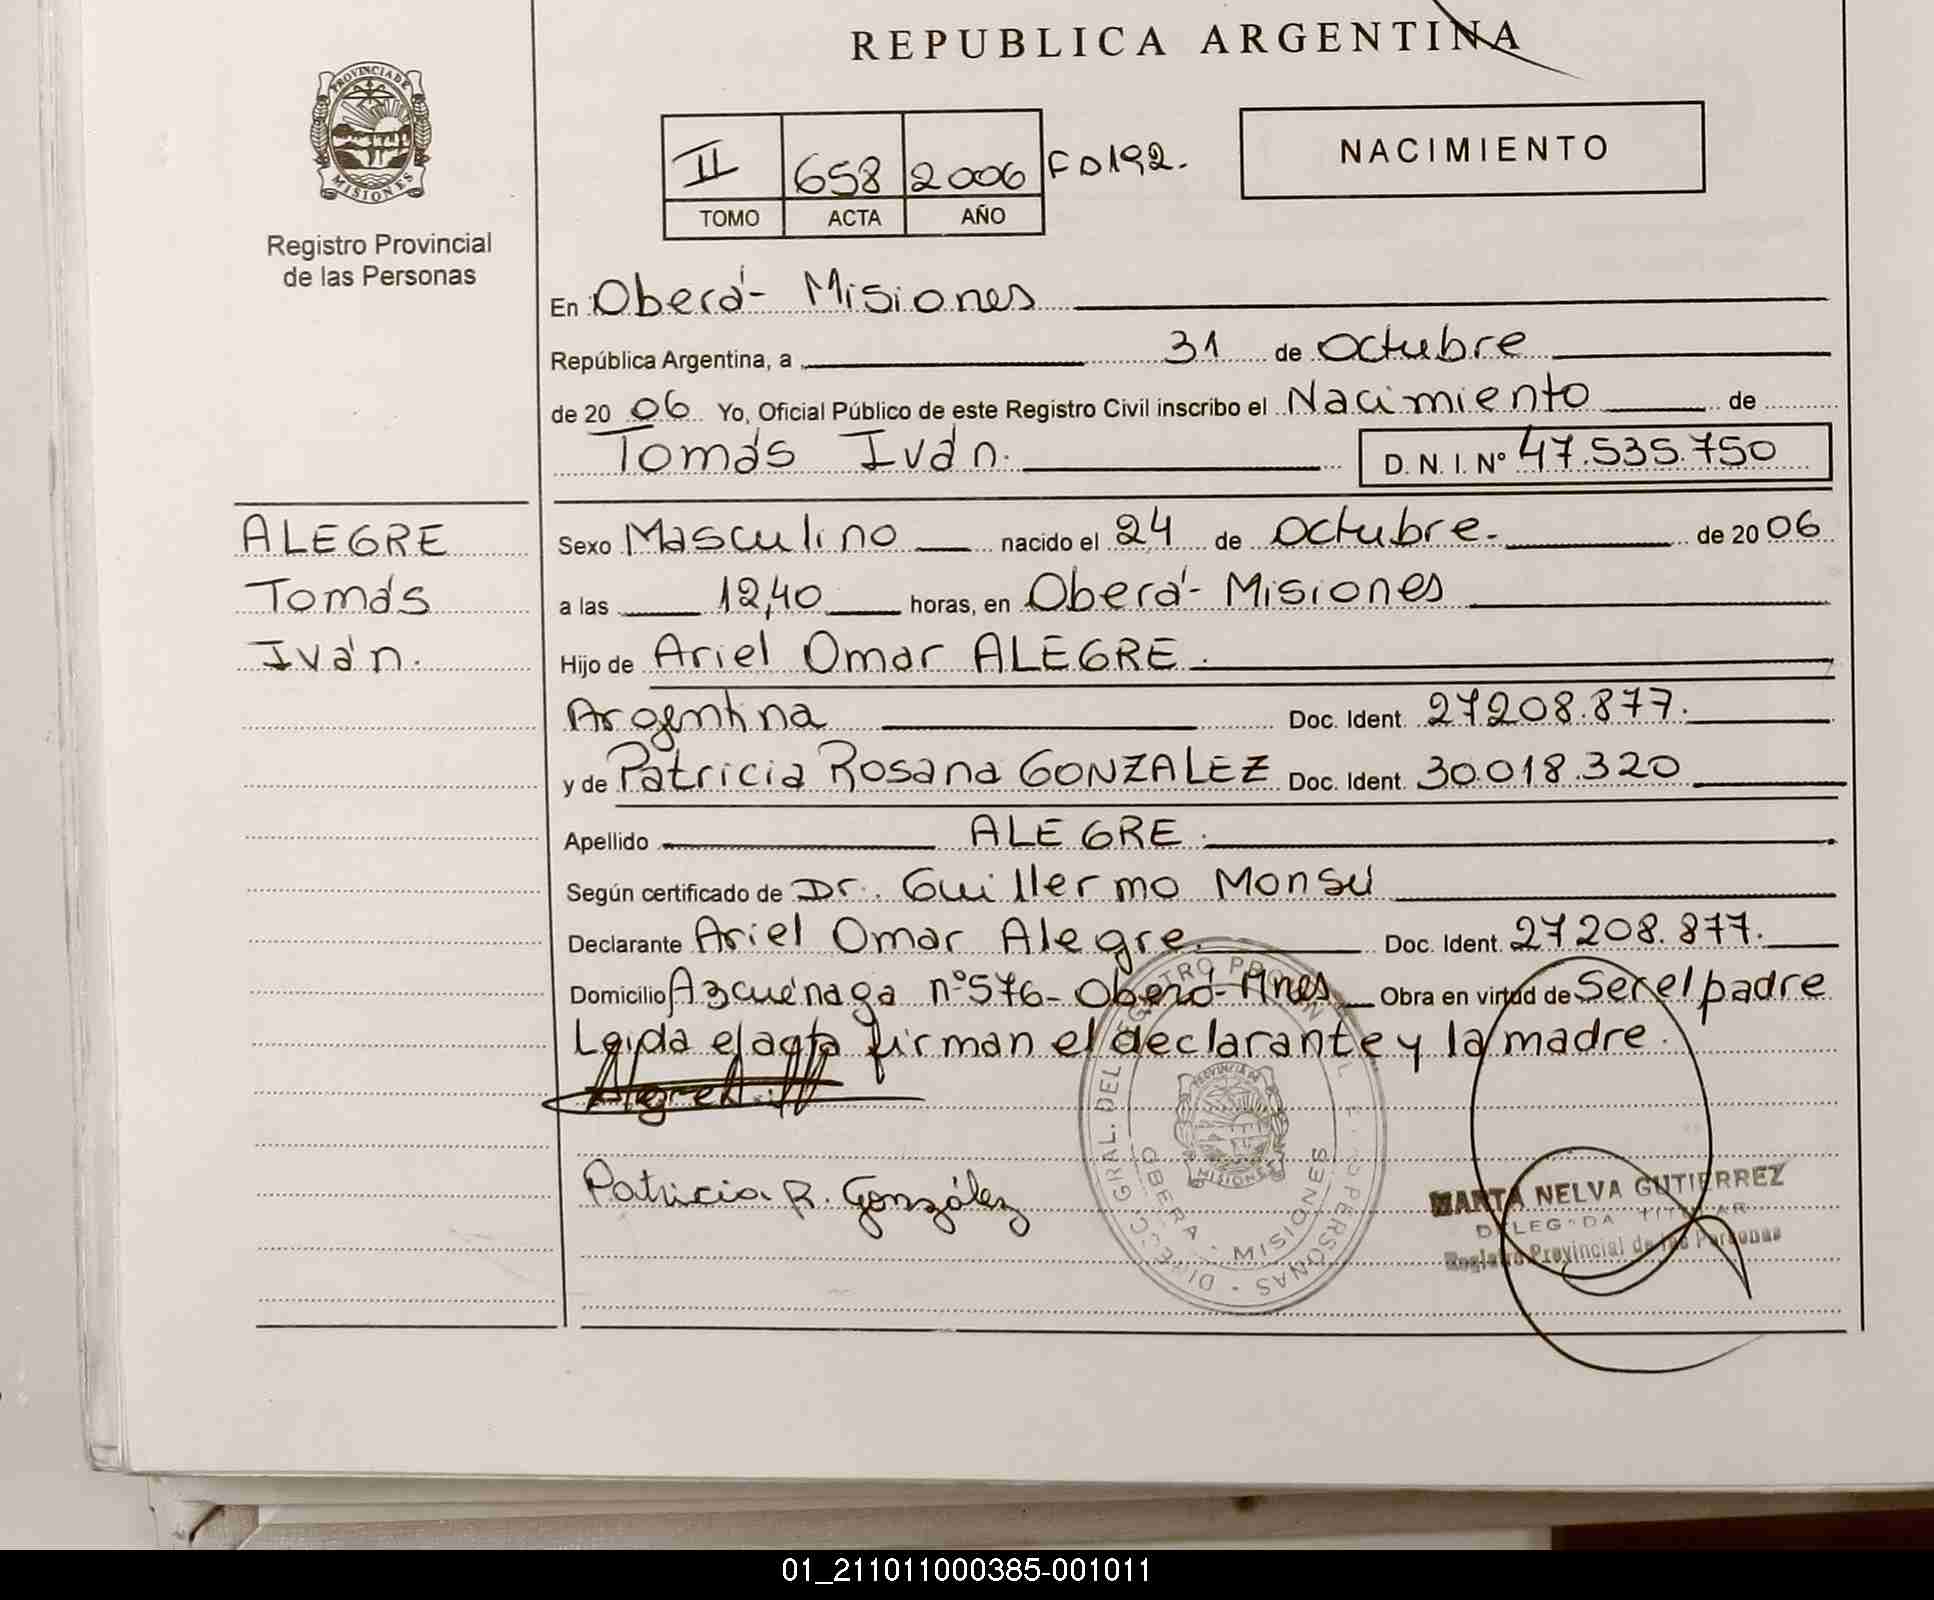 REPUBLICA ARGENTINA
PROVINCIA DE
MISIONES
Registro Provincial
de las Personas
II 658 2006 FD192.
TOMO ACTA AÑO
NACIMIENTO
En Oberá - Misiones
República Argentina, a 31 de Octubre
de 20 06 Yo, Oficial Público de este Registro Civil inscribo el Nacimiento de
Tomás Iván. D. N. I. Nº 47.535.750
ALEGRE
Tomás
Iván.
Sexo Masculino nacido el 24 de Octubre. de 20 06
a las 12,40 horas, en Oberá - Misiones
Hijo de Ariel Omar ALEGRE.
Argentina Doc. Ident. 27208.877.
y de Patricia Rosana GONZALEZ Doc. Ident. 30.018.320
Apellido ALEGRE.
Según certificado de Dr. Guillermo Monsú
Declarante Ariel Omar Alegre. Doc. Ident. 27208.877.
Domicilio Azcuénaga nº 576 - Oberá - Mnes Obra en virtud de Ser el padre
Leida el acta firman el declarante y la madre.
Patricia R. González
DIRECC. GRAL. DEL REGISTRO PROVINCIAL DE LAS PERSONAS
PROVINCIA DE
MISIONES
OBERA - MISIONES
MARTA NELVA GUTIERREZ
DELEGADA TITULAR
Registro Provincial de las Personas
01_211011000385-001011